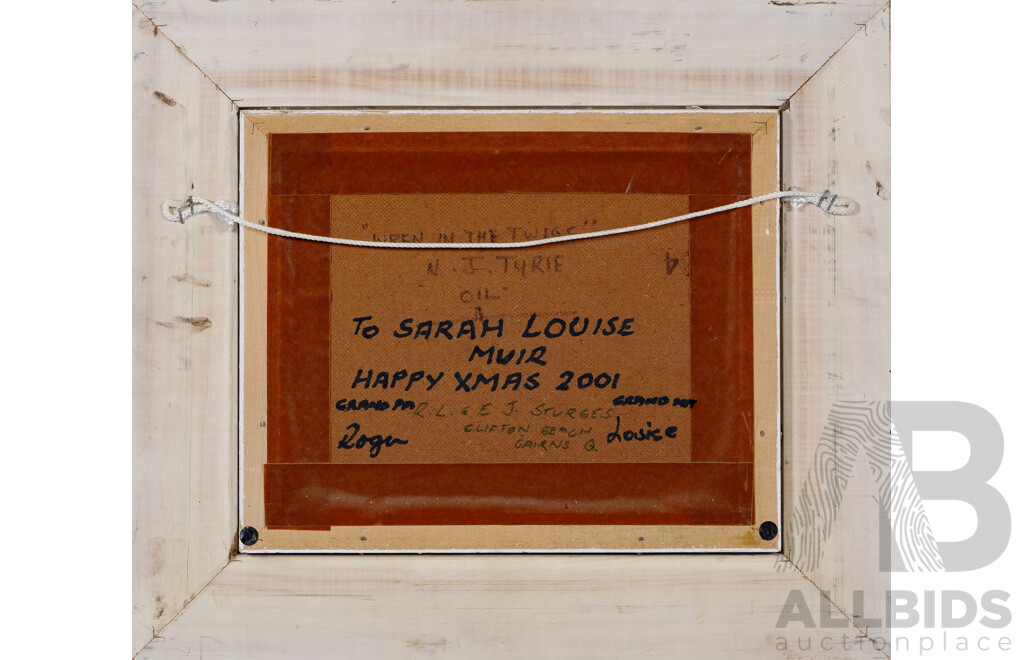 "WREN IN THE TWIGS"
N. J. TYRIE
OIL
To SARAH LOUISE
MUIR
HAPPY XMAS 2001
GRAND PA R. L. & E J. STURGES GRAND MA
CLIFTON BEACH
Roger Louise
CAIRNS Q
AB
ALLBIDS
auctionplace